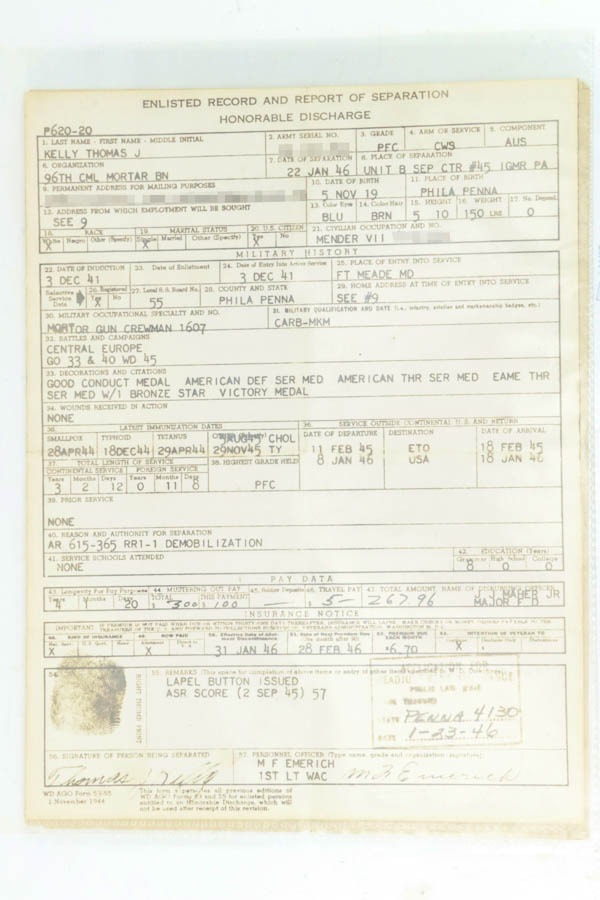 ENLISTED RECORD AND REPORT OF SEPARATION
HONORABLE DISCHARGE
P620-20
1. LAST NAME - FIRST NAME - MIDDLE INITIAL 2. ARMY SERIAL NO. 3. GRADE 4. ARM OR SERVICE 5. COMPONENT
KELLY THOMAS J PFC CWS AUS
6. ORGANIZATION 7. DATE OF SEPARATION 8. PLACE OF SEPARATION
96TH CML MORTAR BN 22 JAN 46 UNIT B SEP CTR #45 IGMR PA
9. PERMANENT ADDRESS FOR MAILING PURPOSES 10. DATE OF BIRTH 11. PLACE OF BIRTH
5 NOV 19 PHILA PENNA
12. ADDRESS FROM WHICH EMPLOYMENT WILL BE SOUGHT 13. Color Eyes 14. Color Hair 15. HEIGHT 16. WEIGHT 17. No. Depend.
SEE 9 BLU BRN 5 10 150 LBS 0
18. RACE 19. MARITAL STATUS 20. U.S. CITIZEN 21. CIVILIAN OCCUPATION AND NO.
White Negro Other (Specify) Single Married Other (Specify) Yes No
X X X MENDER VII
MILITARY HISTORY
22. DATE OF INDUCTION 23. Date of Enlistment 24. Date of Entry Into Active Service 25. PLACE OF ENTRY INTO SERVICE
3 DEC 41 3 DEC 41 FT MEADE MD
Selective Service Data 26. Registered 27. Local S.S. Board No. 28. COUNTY AND STATE 29. HOME ADDRESS AT TIME OF ENTRY INTO SERVICE
Yes No X 55 PHILA PENNA SEE #9
30. MILITARY OCCUPATIONAL SPECIALTY AND NO. 31. MILITARY QUALIFICATION AND DATE (i.e., infantry, aviation and marksmanship badges, etc.)
MORTOR GUN CREWMAN 1607 CARB-MKM
32. BATTLES AND CAMPAIGNS
CENTRAL EUROPE
GO 33 & 40 WD 45
33. DECORATIONS AND CITATIONS
GOOD CONDUCT MEDAL AMERICAN DEF SER MED AMERICAN THR SER MED EAME THR
SER MED W/1 BRONZE STAR VICTORY MEDAL
34. WOUNDS RECEIVED IN ACTION
NONE
35. LATEST IMMUNIZATION DATES 36. SERVICE OUTSIDE CONTINENTAL U.S. AND RETURN
SMALLPOX TYPHOID TETANUS CHOL DATE OF DEPARTURE DESTINATION DATE OF ARRIVAL
28APR44 18DEC44 29APR44 29NOV45 TY 11 FEB 45 ETO 18 FEB 45
37. TOTAL LENGTH OF SERVICE 38. HIGHEST GRADE HELD 8 JAN 46 USA 18 JAN 46
CONTINENTAL SERVICE FOREIGN SERVICE
Years Months Days Years Months Days
3 2 12 0 11 8 PFC
39. PRIOR SERVICE
NONE
40. REASON AND AUTHORITY FOR SEPARATION
AR 615-365 RR1-1 DEMOBILIZATION
41. SERVICE SCHOOLS ATTENDED 42. EDUCATION (Years)
Grammar High School College
NONE 8 0 0
PAY DATA
43. Longevity For Pay Purposes 44. MUSTERING OUT PAY 45. Soldier Deposits 46. TRAVEL PAY 47. TOTAL AMOUNT, NAME OF DISBURSING OFFICER
Years Months Days TOTAL THIS PAYMENT J MAHER JR
4 20 300 100 5 267.96 MAJOR F D
INSURANCE NOTICE
31 JAN 46 28 FEB 46 6.70
54. 55. REMARKS (This space for completion of above items or entry of other items
RIGHT THUMB PRINT
LAPEL BUTTON ISSUED
ASR SCORE (2 SEP 45) 57
PENNA 4130
DATE 1-23-46
56. SIGNATURE OF PERSON BEING SEPARATED 57. PERSONNEL OFFICER (Type name, grade and organization - signature)
M F EMERICH
Thomas J Kelly 1ST LT WAC M F Emerich
WD AGO Form 53-55
1 November 1944
This form supersedes all previous editions of
WD AGO Forms 53 and 55 for enlisted persons
entitled to an Honorable Discharge, which will
not be used after receipt of this revision.